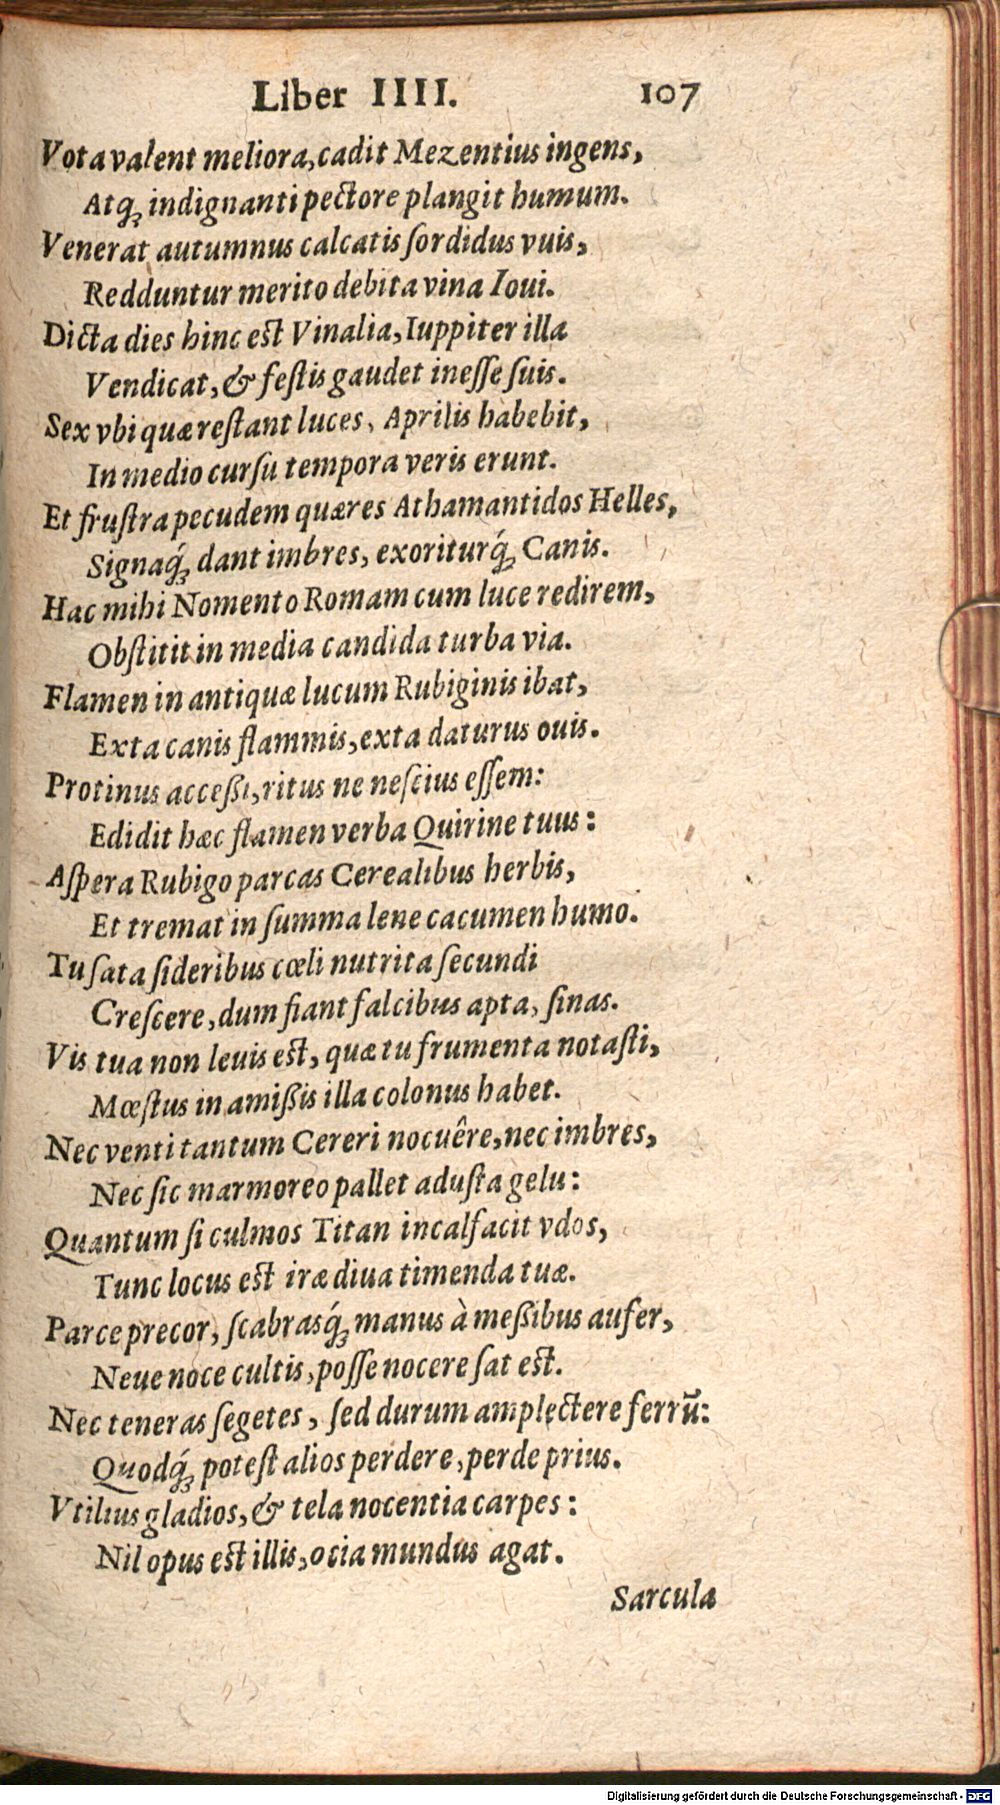 Liber IIII. 107
Vota valent meliora, cadit Mezentius ingens,
Atq; indignanti pectore plangit humum.
Venerat autumnus calcatis ſordidus vuis,
Redduntur merito debita vina Ioui.
Dicta dies hinc eſt Vinalia, Iuppiter illa
Vendicat, & feſtis gaudet ineſſe ſuis.
Sex vbi quæ reſtant luces, Aprilis habebit,
In medio curſu tempora veris erunt.
Et fruſtra pecudem quæres Athamantidos Helles,
Signaq́; dant imbres, exoriturq́; Canis.
Hac mihi Nomento Romam cum luce redirem,
Obſtitit in media candida turba via.
Flamen in antiquæ lucum Rubiginis ibat,
Exta canis flammis, exta daturus ouis.
Protinus acceßi, ritus ne neſcius eſſem:
Edidit hæc flamen verba Quirine tuus:
Aſpera Rubigo parcas Cerealibus herbis,
Et tremat in ſumma lene cacumen humo.
Tu ſata ſideribus cœli nutrita ſecundi
Creſcere, dum fiant falcibus apta, ſinas.
Vis tua non leuis eſt, quæ tu frumenta notaſti,
Mœſtus in amißis illa colonus habet.
Nec venti tantum Cereri nocuêre, nec imbres,
Nec ſic marmoreo pallet aduſta gelu:
Quantum ſi culmos Titan incalfacit vdos,
Tunc locus eſt iræ diua timenda tuæ.
Parce precor, ſcabrasq́; manus à meßibus aufer,
Neue noce cultis, poſſe nocere ſat eſt.
Nec teneras ſegetes, ſed durum amplectere ferrũ:
Quodq́; poteſt alios perdere, perde prius.
Vtilius gladios, & tela nocentia carpes:
Nil opus eſt illis, ocia mundus agat.
Sarcula
Digitalisierung gefördert durch die Deutsche Forschungsgemeinschaft - DFG